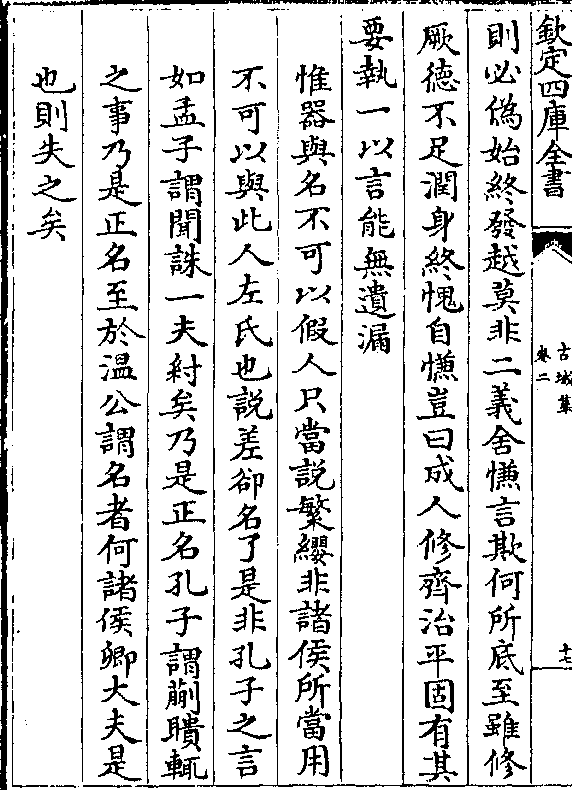 欽定四庫全書
古城集
卷二
十七
則必偽始終發越莫非二義舍慊言欺何所底至雖修
厥德不足潤身終愧自慊豈曰成人修齊治平固有其
要執一以言能無遺漏
惟器與名不可以假人只當說繁纓非諸侯所當用
不可以與此人左氏也說差卻名了是非孔子之言
如孟子謂聞誅一夫紂矣乃是正名孔子謂蒯聵輒
之事乃是正名至於温公謂名者何諸侯卿大夫是
也則失之矣